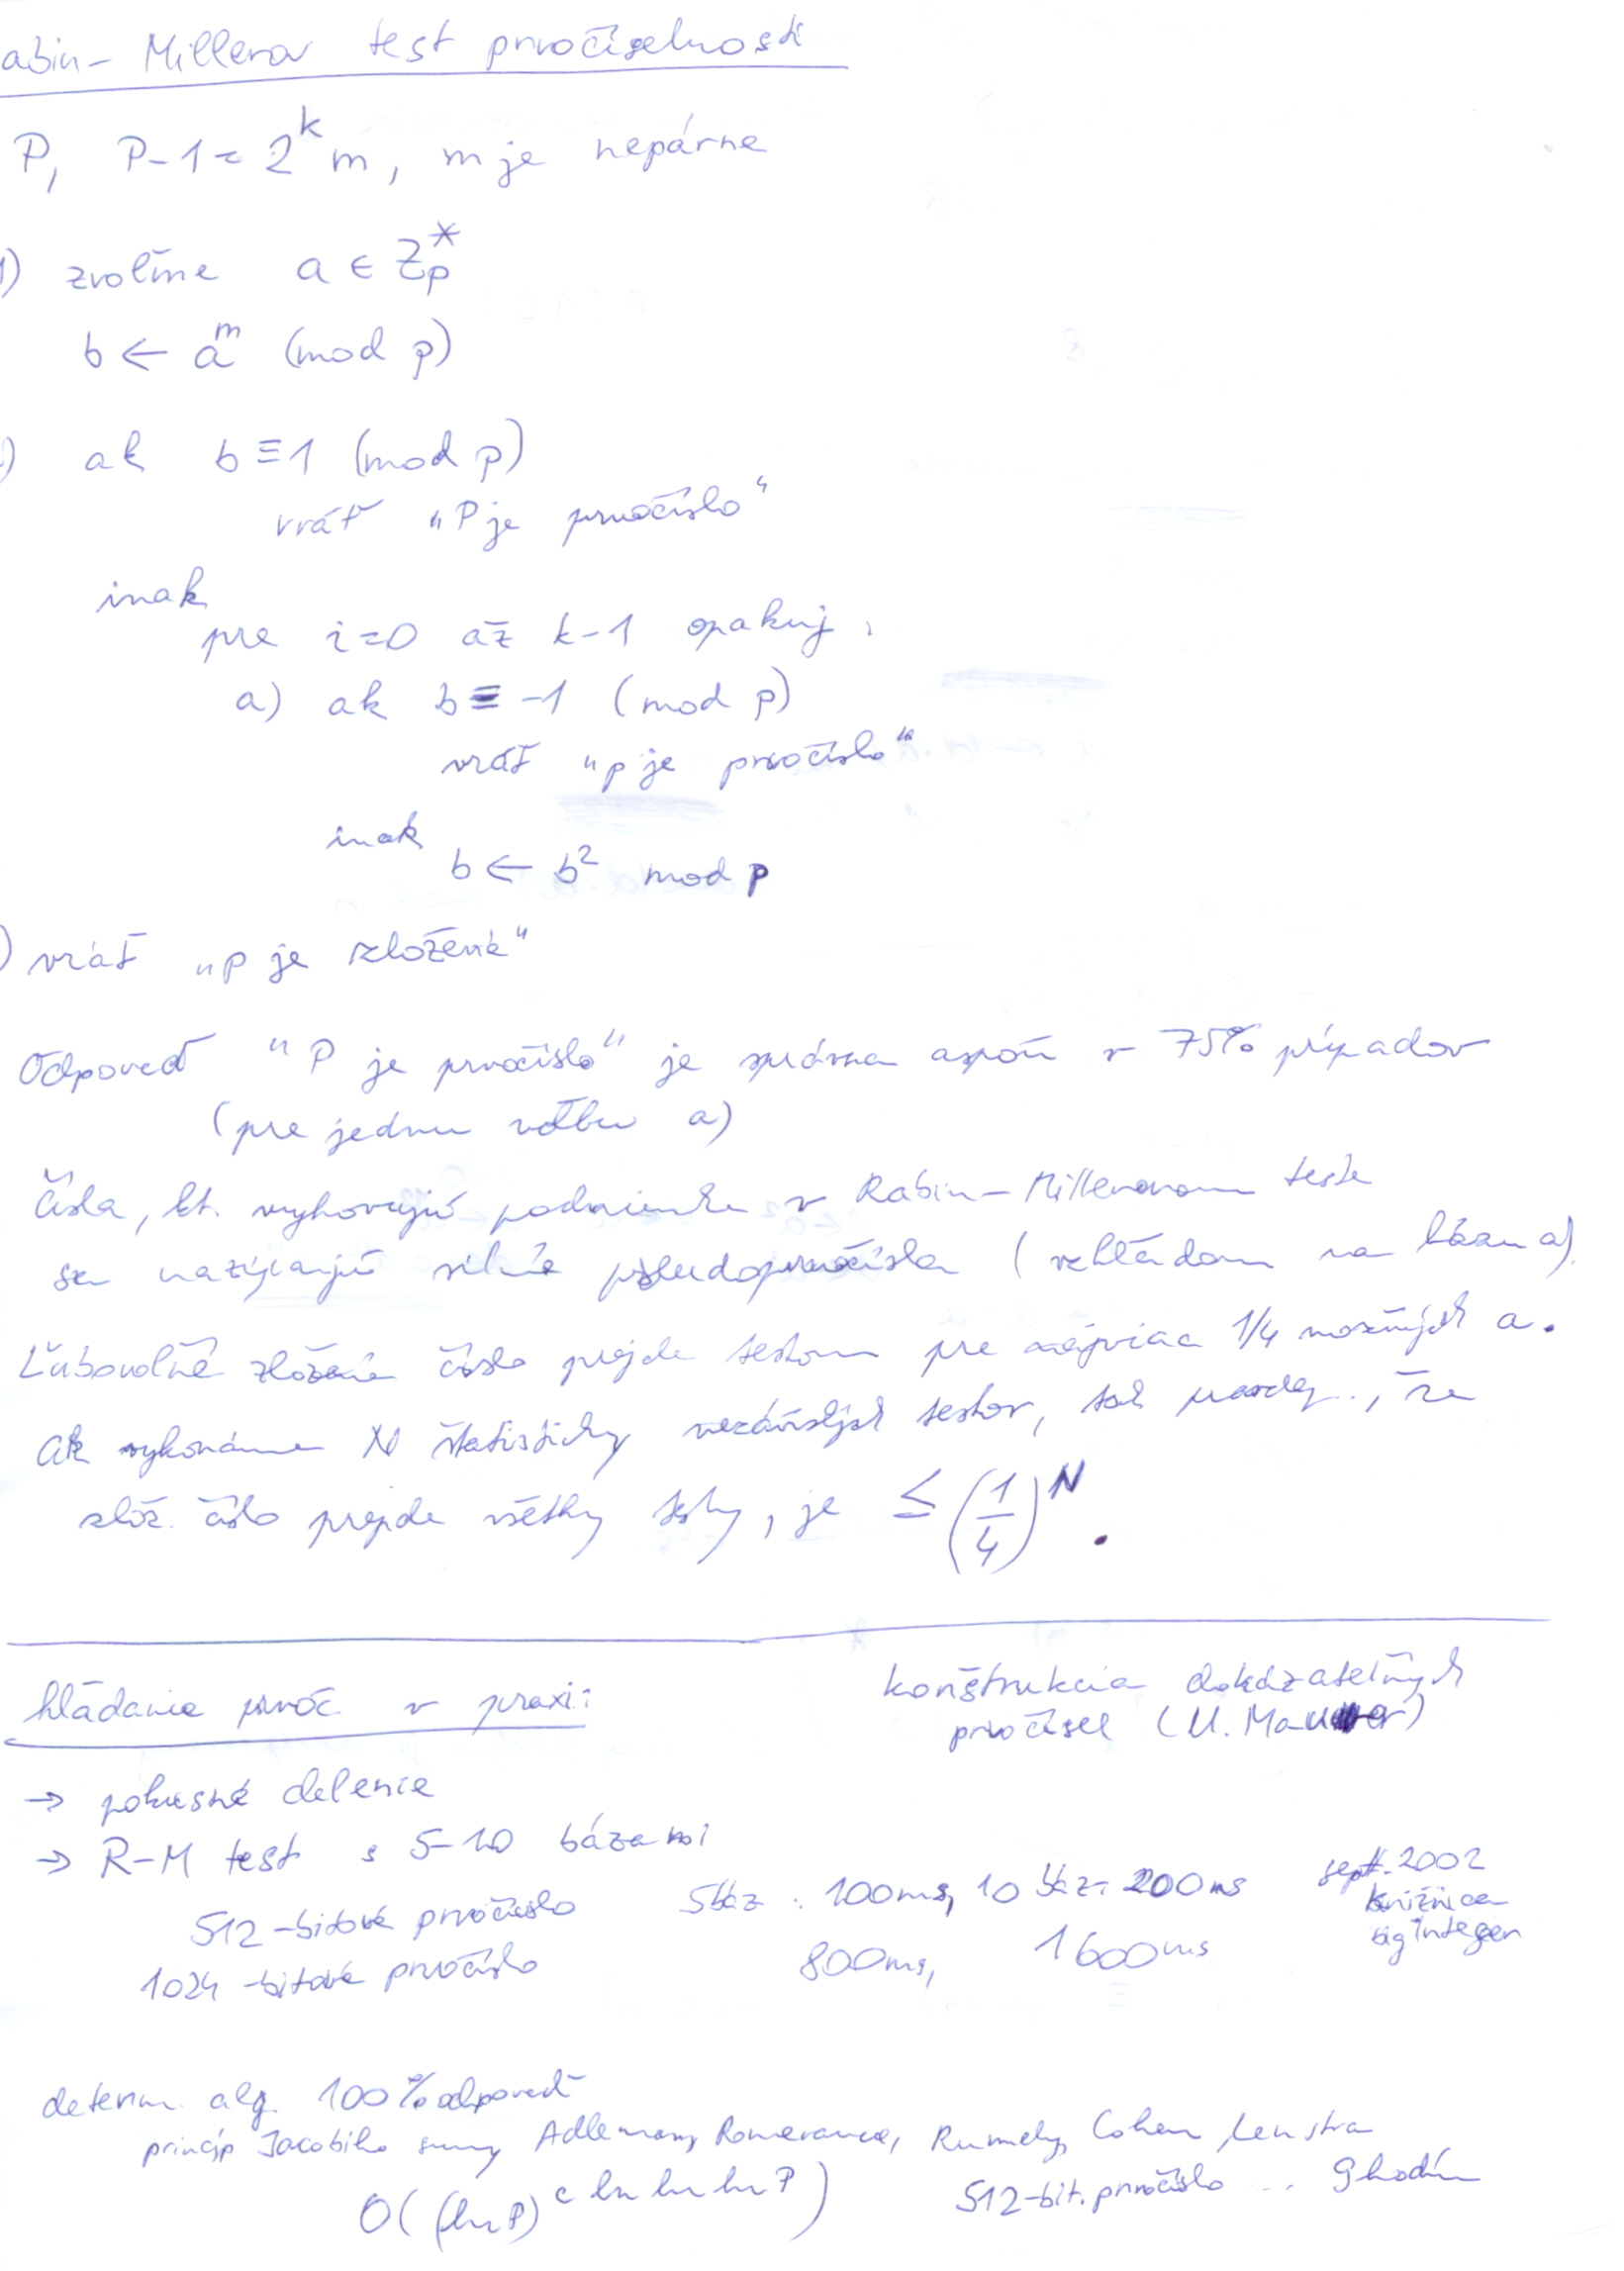 abin- Millerov test prvočíselnosti
P, P-1 = 2^k m, m je nepárne
1) zvolíme a ∈ Z_p^*
b ← a^m (mod p)
) ak b ≡ 1 (mod p)
vráť "P je prvočíslo"
inak
pre i=0 až k-1 opakuj:
a) ak b ≡ -1 (mod p)
vráť "p je prvočíslo"
inak
b ← b^2 mod p
) vráť "p je zložené"
Odpoveď "P je prvočíslo" je správna aspoň v 75% prípadov
(pre jednu voľbu a)
Čísla, kt. vyhovujú podmienke v Rabin-Millerovom teste
sa nazývajú silné pseudoprvočísla (vzhľadom na bázu a).
Ľubovoľné zložené číslo prejde testom pre najviac 1/4 možných a.
Ak vykonáme N štatisticky nezávislých testov, tak pravdep., že
zlož. číslo prejde všetky testy, je ≤ (1/4)^N.
hľadanie prvoč. v praxi:
konštrukcia dokázateľných
prvočísel (U. Maurer)
→ pokusné delenie
→ R-M test s 5-10 bázami
512-bitové prvočíslo 5báz : 100ms, 10 báz: 200ms
1024-bitové prvočíslo 800ms, 1600ms
sept. 2002
knižnica
big integer
determ. alg. 100% odpoveď
princíp Jacobiho sumy Adleman, Pomerance, Rumely, Cohen, Lenstra
O((ln P)^{c ln ln ln P}) 512-bit. prvočíslo ... 9 hodín